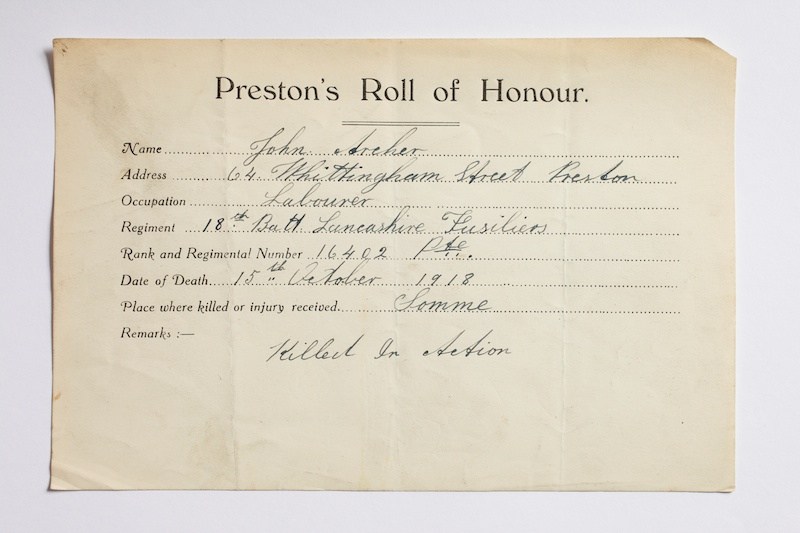 Preston's Roll of Honour.
Name John Archer
Address 64 Whittingham Street Preston
Occupation Labourer
Regiment 18th Batt Lancashire Fusiliers
Rank and Regimental Number 16402 Pte.
Date of Death 15th October 1918
Place where killed or injury received Somme
Remarks :—
Killed In Action